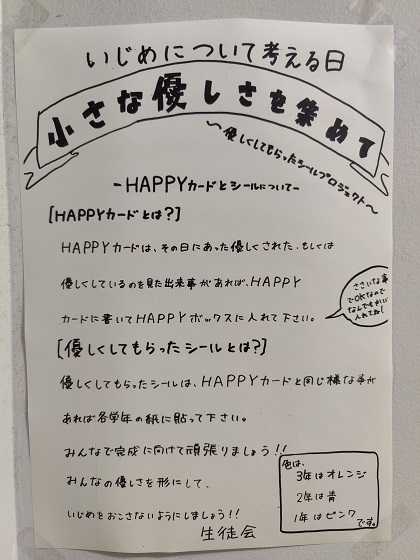 いじめについて考える日
小さな優しさを集めて
～優しくしてもらったシールプロジェクト～
-HAPPYカードとシールについて-
[HAPPYカードとは?]
HAPPYカードは、その日にあった優しくされた、もしくは
優しくしているのを見た出来事があれば、HAPPY
カードに書いてHAPPYボックスに入れて下さい。
ささいな事
でOKなので
なんでもかいて
入れてね!
[優しくしてもらったシールとは?]
優しくしてもらったシールは、HAPPYカードと同じ様な事が
あれば各学年の紙に貼って下さい。
みんなで完成に向けて頑張りましょう!!
みんなの優しさを形にして、
いじめをおこさないようにしましょう!!
生徒会
色は、
3年はオレンジ
2年は青
1年はピンク
です。